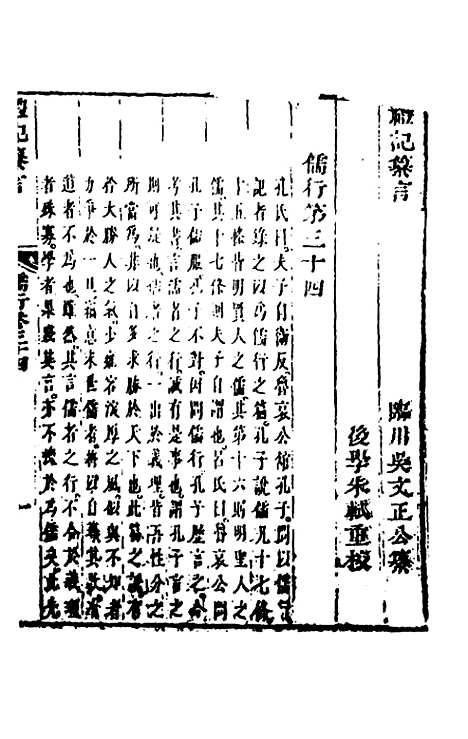 禮記纂言
臨川吳文正公纂
後學朱軾重校
儒行第三十四
孔氏曰夫子自衛反魯哀公館孔子問以儒行
記者錄之以為儒行之篇孔子說儒凡十七條
十五條皆明賢人之儒其第十六明聖人之
儒其十七條則夫子自謂也呂氏曰魯哀公問
孔子儒服孔子不對因問儒行孔子歷言之今
考其書言儒者之行誠有是事也謂孔子言之
則可疑也儒者之行一出於義理皆吾性分之
所當為非以自多求勝於天下也此篇之說有
矜大勝人之氣少雍容深厚之風似與不知者
力爭於一旦竊意末世儒者將以自尊其教有
道者不為也雖然其言儒者之行不合於義理
者殊寡學者果踐其言亦不愧於為儒矣此先
禮記纂言
儒行卷三十四
一